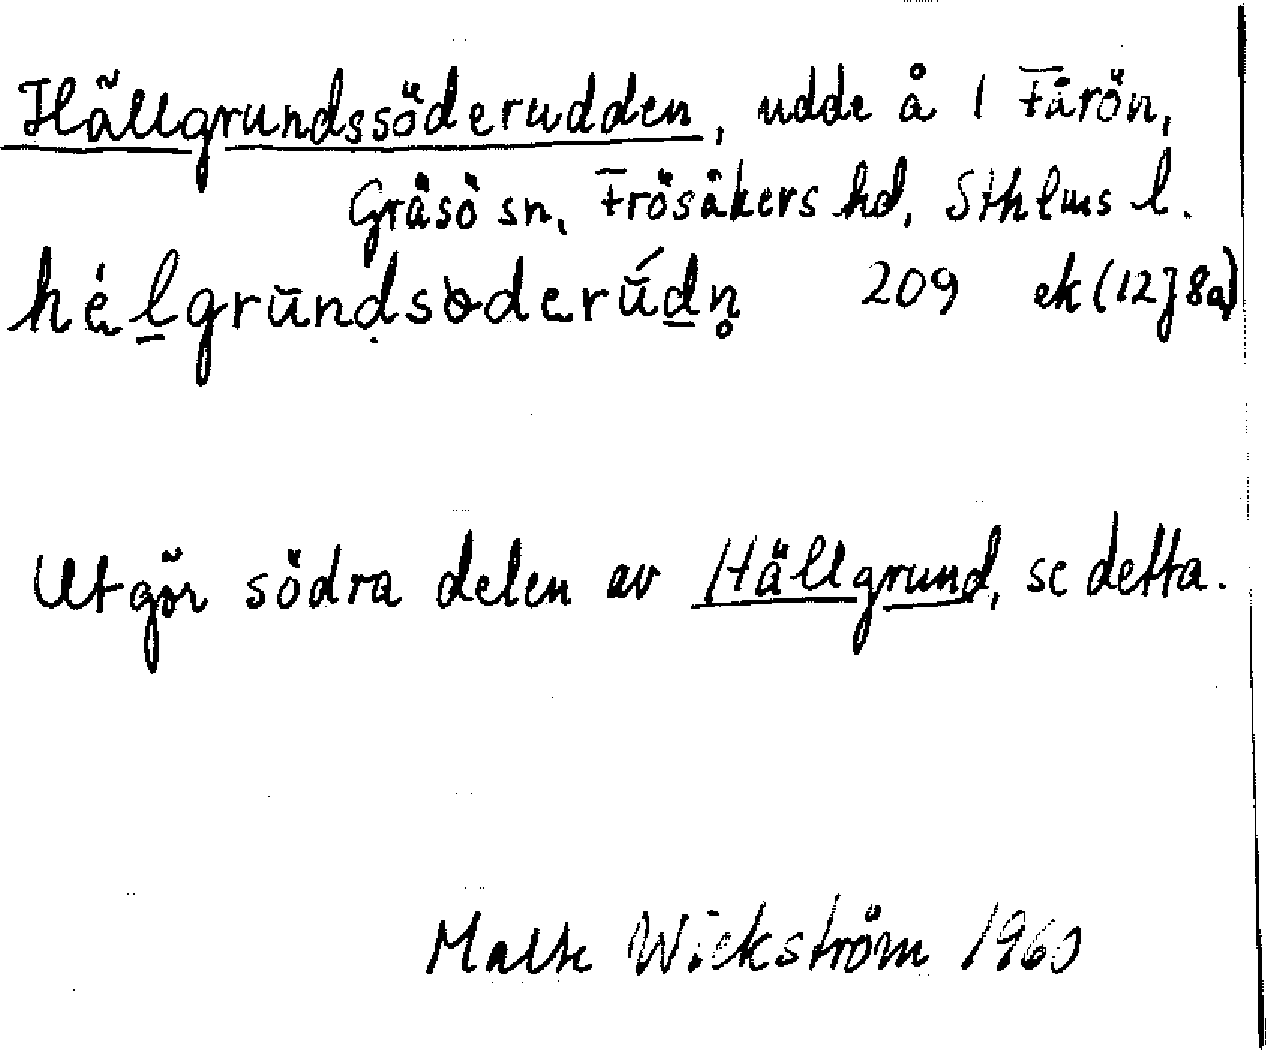 Hällgrundssöderudden, udde å l Fårön,
Gräsö sn, Frösåkers hd, Sthlms l.
hélgrūndsöderúdn̥ 209 ek (12J8a)
Utgör södra delen av Hällgrund, se detta.
Malte Wickström 1960